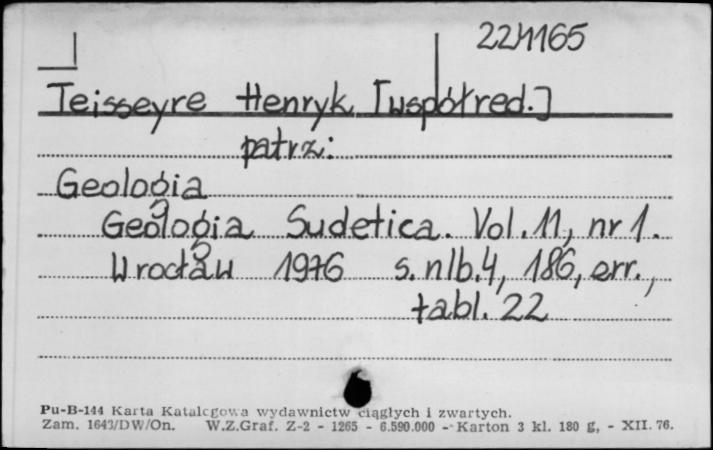 224165
Teisseyre Henryk [współred.]
patrz:
Geologia
Geologia Sudetica. Vol. 11, nr 1.
Wrocław 1976 s. nlb. 4, 186, err.,
tabl. 22
Pu-B-144 Karta Katalogowa wydawnictw ciągłych i zwartych.
Zam. 1643/DW/On. W.Z.Graf. Z-2 - 1265 - 6.590.000 - Karton 3 kl. 180 g, - XII. 76.